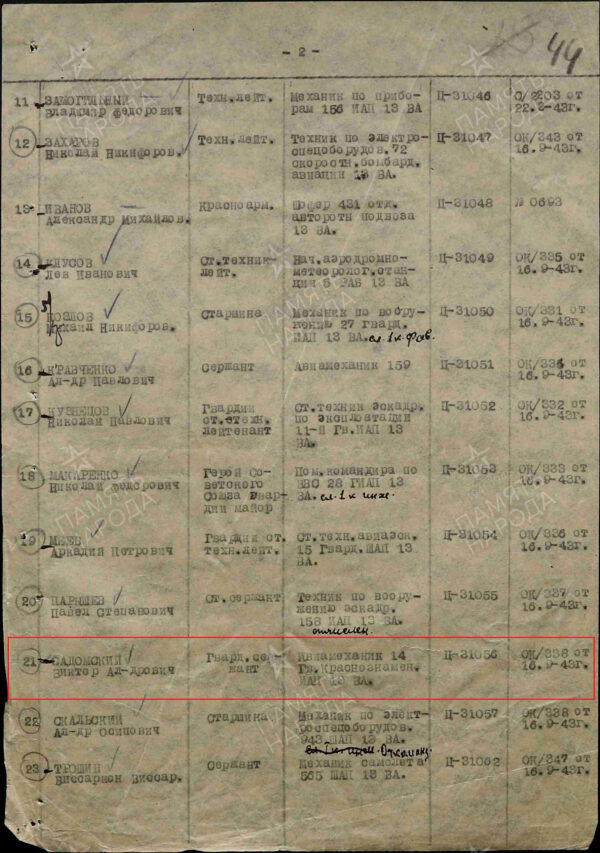 - 2 -
44
11 ЗАМОГИЛЬНЫЙ Техн.лейт. Механик по прибо- Ц-31046 С/2203 от
Владимир Федорович рам 156 ИАП 13 ВА 22.2-43г.
12 ЗАХАРОВ Техн.лейт. Техник по электро- Ц-31047 ОК/343 от
Николай Никифоров. спецоборудов.72 16.9-43г.
скоростн.бомбард.
авиации 13 ВА.
13 ИВАНОВ Красноарм. Шофер 431 отд. Ц-31048 № 0693
Александр Михайлов. авторотн подвоза
13 ВА.
14 КЛУСОВ Ст.техник- Нач.аэродромно- Ц-31049 ОК/335 от
Лев Иванович лейт. метеоролог.стан- 16.9-43г.
ции 5 РАБ 13 ВА
15 КОЗЛОВ Старшина Механик по воору- Ц-31050 ОК/331 от
Михаил Никифоров. жению 27 гвард. 16.9-43г.
ИАП 13 ВА.
16 КРАВЧЕНКО Сержант Авиамеханик 159 Ц-31051 ОК/334 от
Ал-др Павлович 16.9-43г.
17 КУЗНЕЦОВ Гвардии Ст.техник эскадр. Ц-31052 ОК/332 от
Николай Павлович ст.техн. по эксплоатации 16.9-43г.
лейтенант 11-й Гв.ИАП 13
ВА.
18 МАКАРЕНКО Герой Со- Пом.командира по Ц-31053 ОК/333 от
Николай Федорович ветского ВВС 28 ГИАП 13 16.9-43г.
Союза гвар- ВА.
дии майор
19 Гвардии ст. Ст.техн.авиаэск. Ц-31054 ОК/336 от
Аркадий Петрович техн.лейт. 15 Гвард.ШАП 13 16.9-43г.
ВА.
20 ПАРЫШЕВ Ст.сержант Техник по воору- Ц-31055 ОК/337 от
Павел Степанович жению эскадр. 16.9-43г.
158 ИАП 13 ВА.
отчислен.
21 САДОМСКИЙ Гвард.сер- Авиамеханик 14 Ц-31056 ОК/338 от
Виктер Ал-дрович жант Гв.Краснознамен. 16.9-43г.
ИАП 13 ВА.
22 СКАЛЬСКИЙ Старшина Механик по элект- Ц-31057 ОК/338 от
Ал-др Осипович роспецоборудов. 16.9-43г.
943 ШАП 13 ВА.
23 ТРОШИН Сержант Механик самолета Ц-31062 ОК/347 от
Виссарион Виссар. 565 ШАП 13 ВА. 16.9-43г.
ПАМЯТЬ
НАРОДА